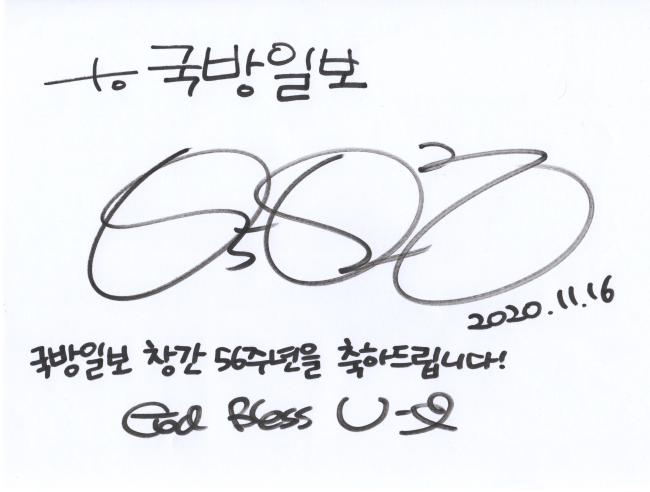 to. 국방일보
2020.11.16
국방일보 창간 56주년을 축하드립니다!
God Bless U~